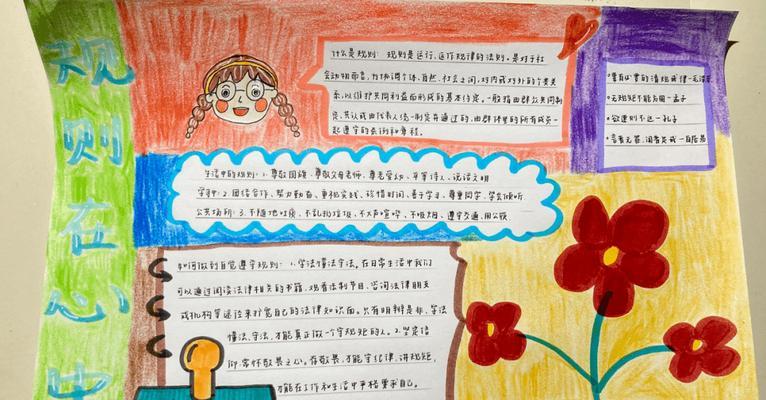 规则在心中
什么是规则: 规则是运行、运作规律的法则。是对于社
会动物而言,为协调个体、自然、社会之间,对内或对外的个类关
系,以维护共同利益而形成的基本约定。一般指由群众共同制
定、共认或由代表人统一制定并通过的,由群体里的所有成员一
起遵守的条例和章程。
生活中的规则: 1. 尊敬国旗、尊敬父母老师、尊老爱幼、平等待人、说话文明
学习中: 2. 团结合作、努力勤奋、重视实践、珍惜时间、善于学习、尊重同学、学会倾听
公共场所: 3. 不随地吐痰、不乱扔垃圾、不大声喧哗、不吸烟、遵守交通、用公筷
•无规矩不能方圆—孟子
•欲速则不达—孔子
•言者无罪,闻者足戒—白居易
如何做到自觉遵守规则: 1. 学法懂法守法。在日常生活中我们
可以通过阅读法律相关的书籍、观看法制节目、咨询法律朋友
或机构等途径来扩宽自己的法律知识面。只有明辨是非、学法
懂法、守法,才能真正做一个守规矩的人。2. 坚定信
仰、常怀敬畏之心。存敬畏,才能守纪律、讲规矩,
才能在工作和生活中严格要求自己。